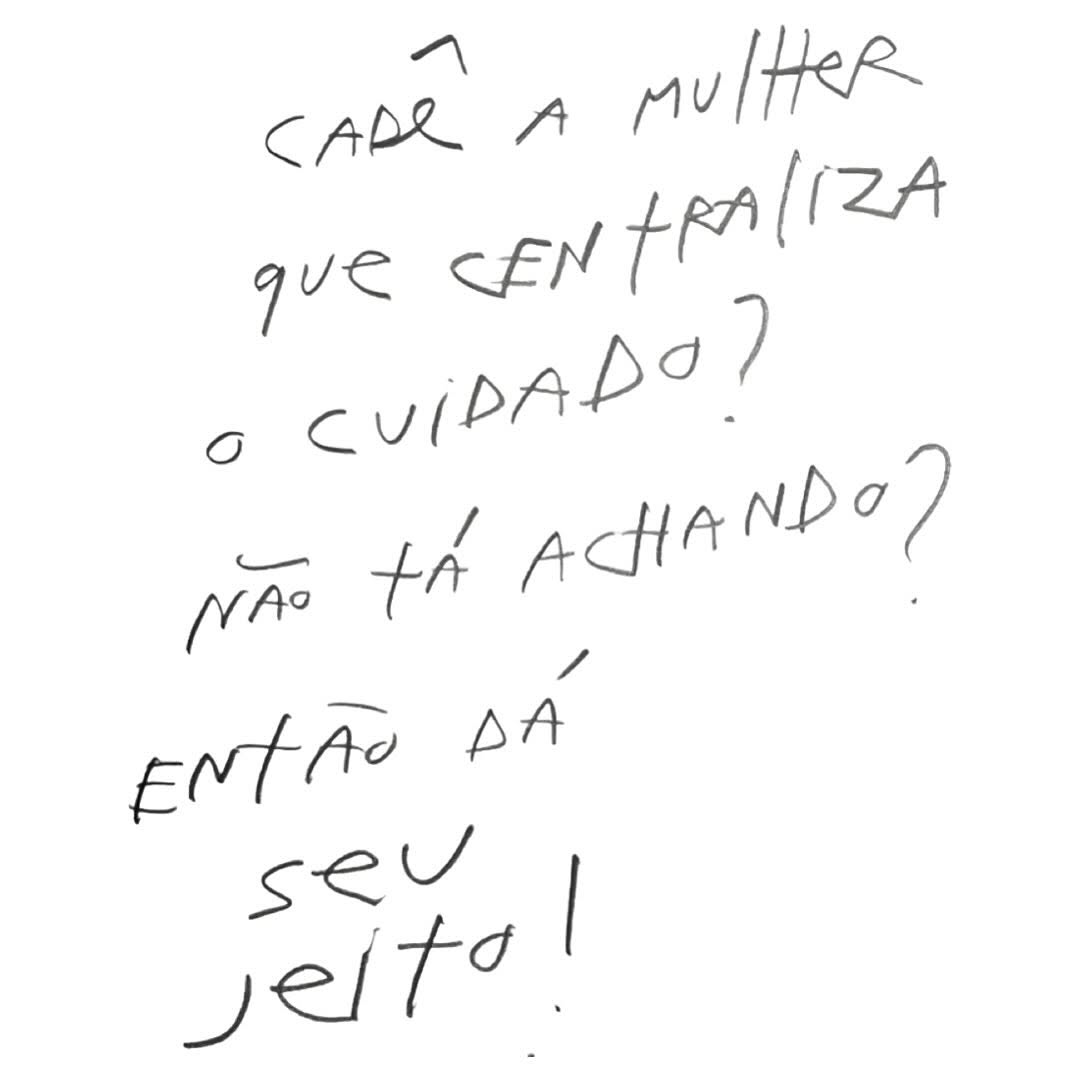 CADê A MUlHeR
que CENtRAliZA
o CUiDADo?
NÃo tÁ ACHANDo?
ENtÃo DÁ
seu
jeito!